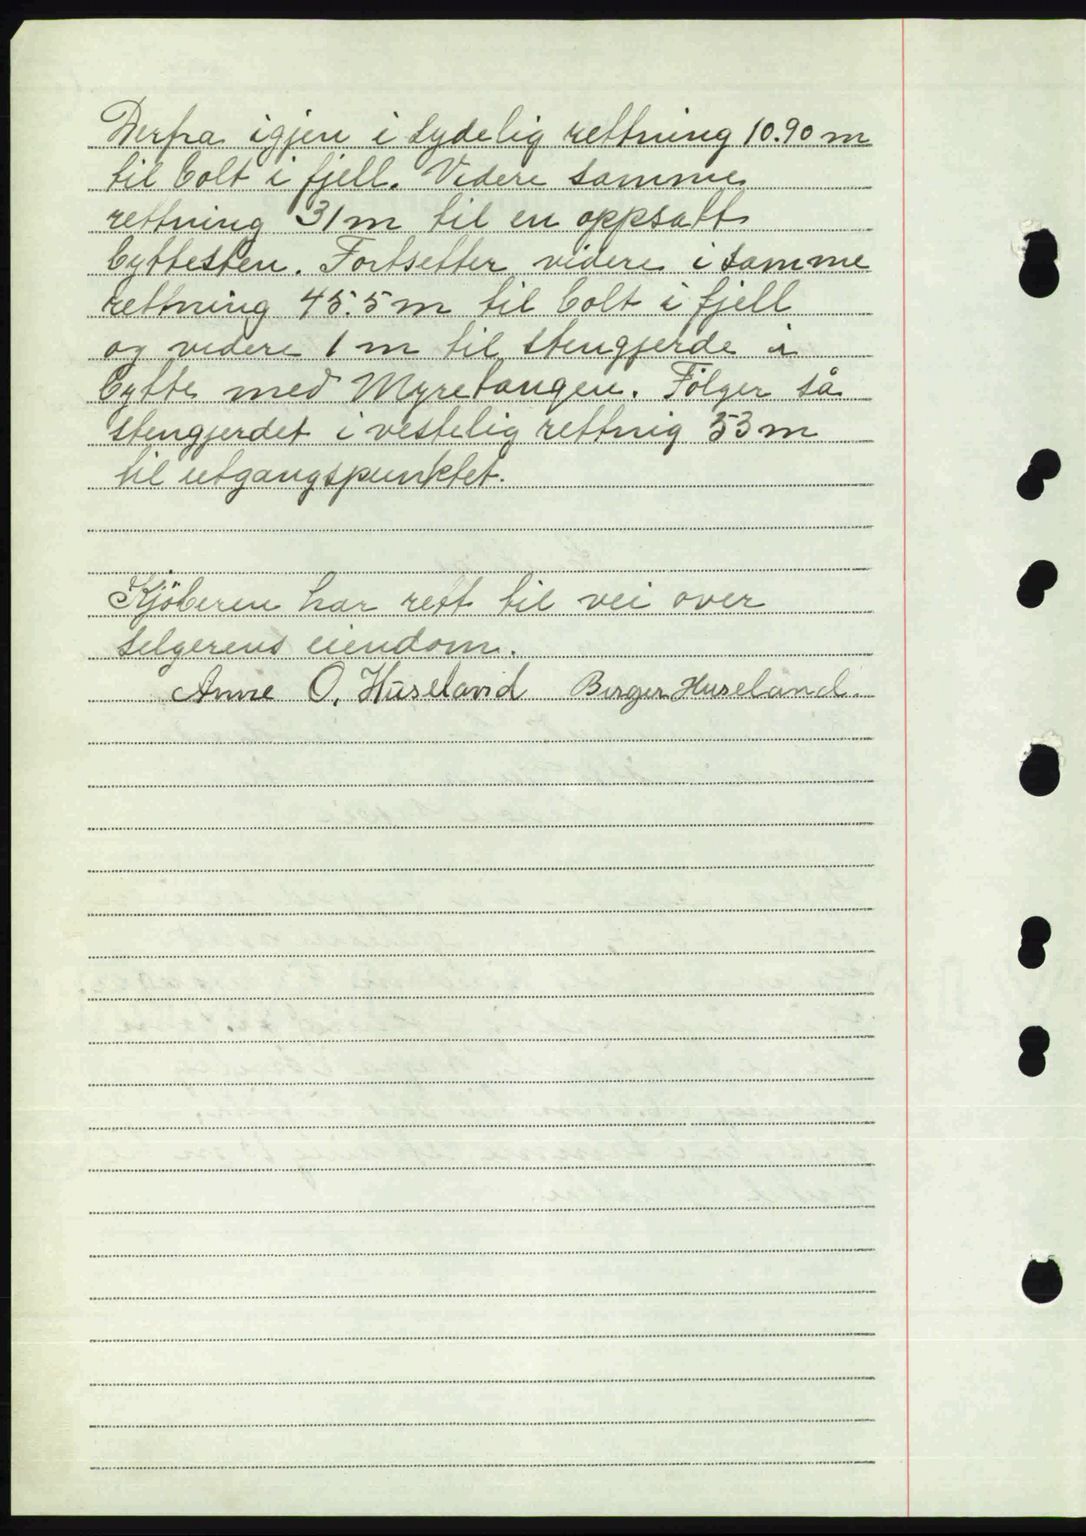 Derfra igjen i sydelig rettning 10.90 m
til bolt i fjell. Videre samme
rettning 31 m til en oppsatt
byttesten. Fortsetter videre i samme
rettning 45.5 m til bolt i fjell
og videre 1 m til stengjerde i
bytte med Myretangen. Følger så
stengjerdet i vestelig rettnig 53 m
til utgangspunktet.
Kjöberen har rett til vei over
selgerens eiendom.
Anne O. Huseland Birger Huseland.